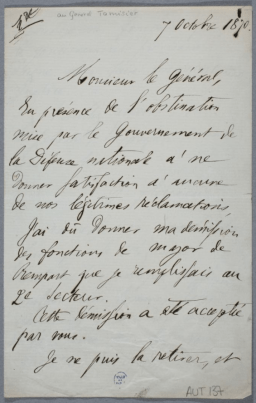 au général Tamisier
7 octobre 1870.
Monsieur le Général,
En présence de l'obstination
mise par le Gouvernement de
la Défense nationale à ne
donner satisfaction à aucune
de nos légitimes réclamations,
J'ai dû donner ma démission
des fonctions de major de
rempart que je remplissais au
2e Secteur.
Cette démission a été acceptée
par vous.
Je ne puis la retirer, et
AUT 137